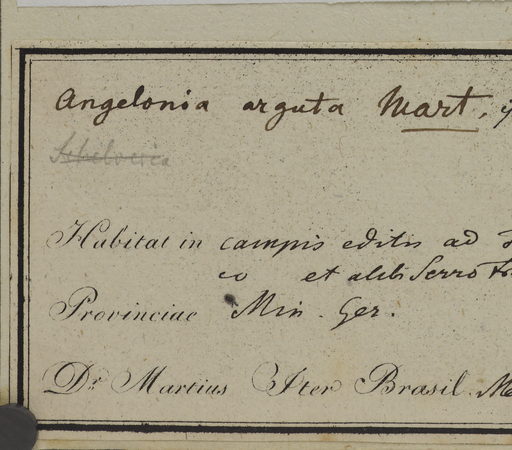 Angelonia arguta Mart.
Habitat in campis editis ad
et alibi Serro
Provinciae Min. Ger.
Dr. Martius Iter Brasil.